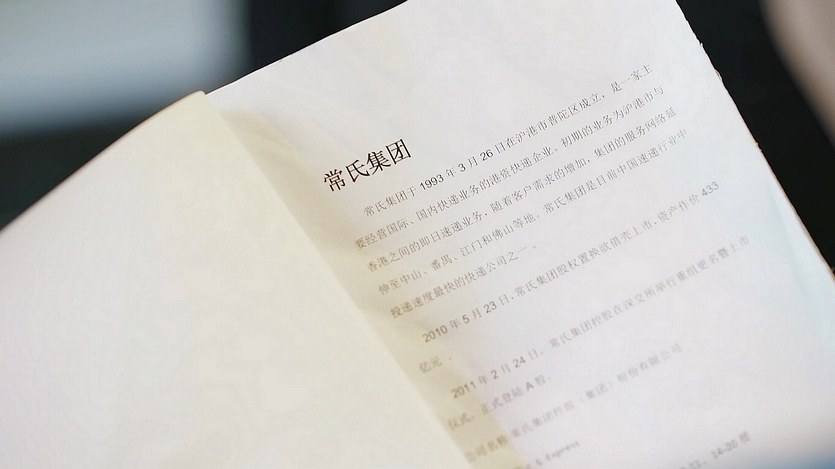 常氏集团
常氏集团于 1993 年 3 月 26 日在沪港市普陀区成立，是一家主
要经营国际、国内快递业务的港资快递企业。初期的业务为沪港市与
香港之间的即日速递业务，随着客户需求的增加，集团的服务网络延
伸至中山、番禺、江门和佛山等地。常氏集团是目前中国速递行业中
投递速度最快的快递公司之一。
2010 年 5 月 23 日，常氏集团股权置换欲借壳上市，资产作价 433
亿元。
2011 年 2 月 24 日，常氏集团控股在深交所举行重组更名暨上市
仪式，正式登陆 A 股。
公司名称 常氏集团控股（集团）股份有限公司
Express